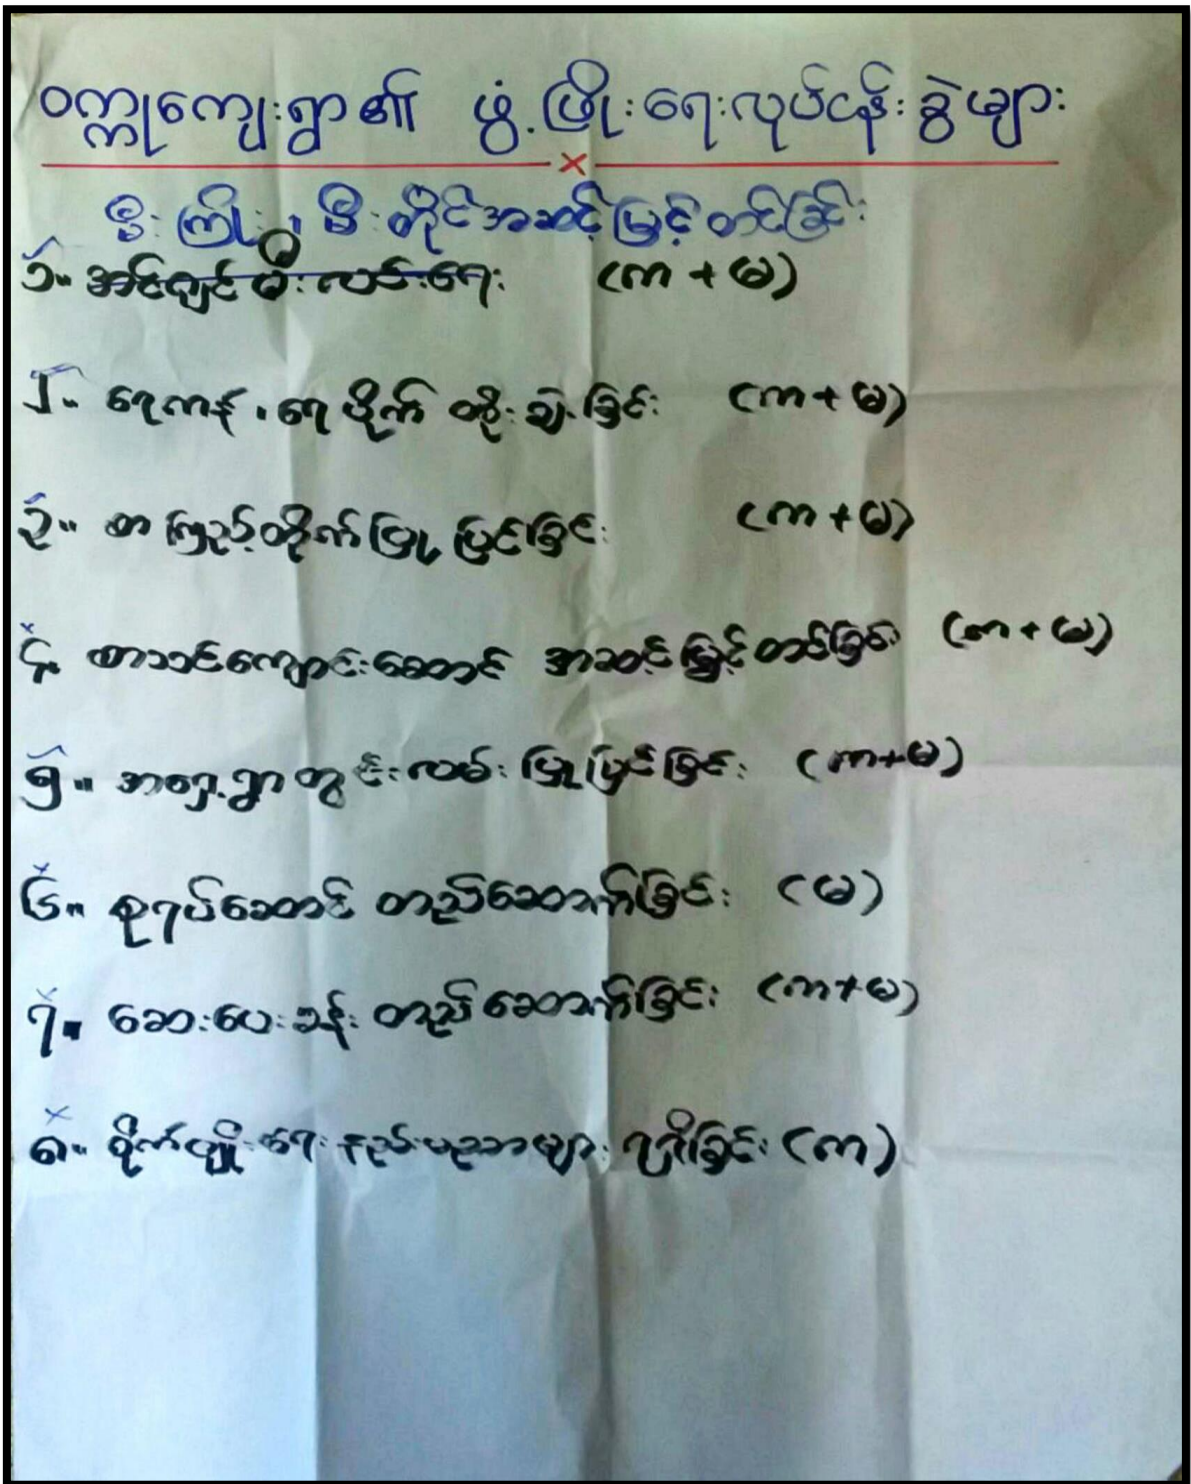 ဝက္ကုကျေးရွာ၏ ဖွံ့ဖြိုးရေးလုပ်ငန်းခွဲများ
မီးကြိုး၊ မီးတိုင်အဆင့်မြှင့်တင်ခြင်း
၁။ အင်ဂျင်မီးလင်းရေး (ကာ + မ)
၂။ ရေကန်၊ ရေပိုက် တိုးချဲ့ခြင်း (ကာ + မ)
၃။ စာကြည့်တိုက်ပြုပြင်ခြင်း (ကာ + မ)
၄။ စာသင်ကျောင်းဆောင် အဆင့်မြှင့်တင်ခြင်း (ကာ + မ)
၅။ အရှေ့ရွာတွင်းလမ်းပြုပြင်ခြင်း (ကာ+မ)
၆။ စုရပ်ဆောင် တည်ဆောက်ခြင်း (မ)
၇။ ဆေးပေးခန်း တည်ဆောက်ခြင်း (ကာ+မ)
၈။ စိုက်ပျိုးရေးနည်းပညာများ ရရှိခြင်း (ကာ)